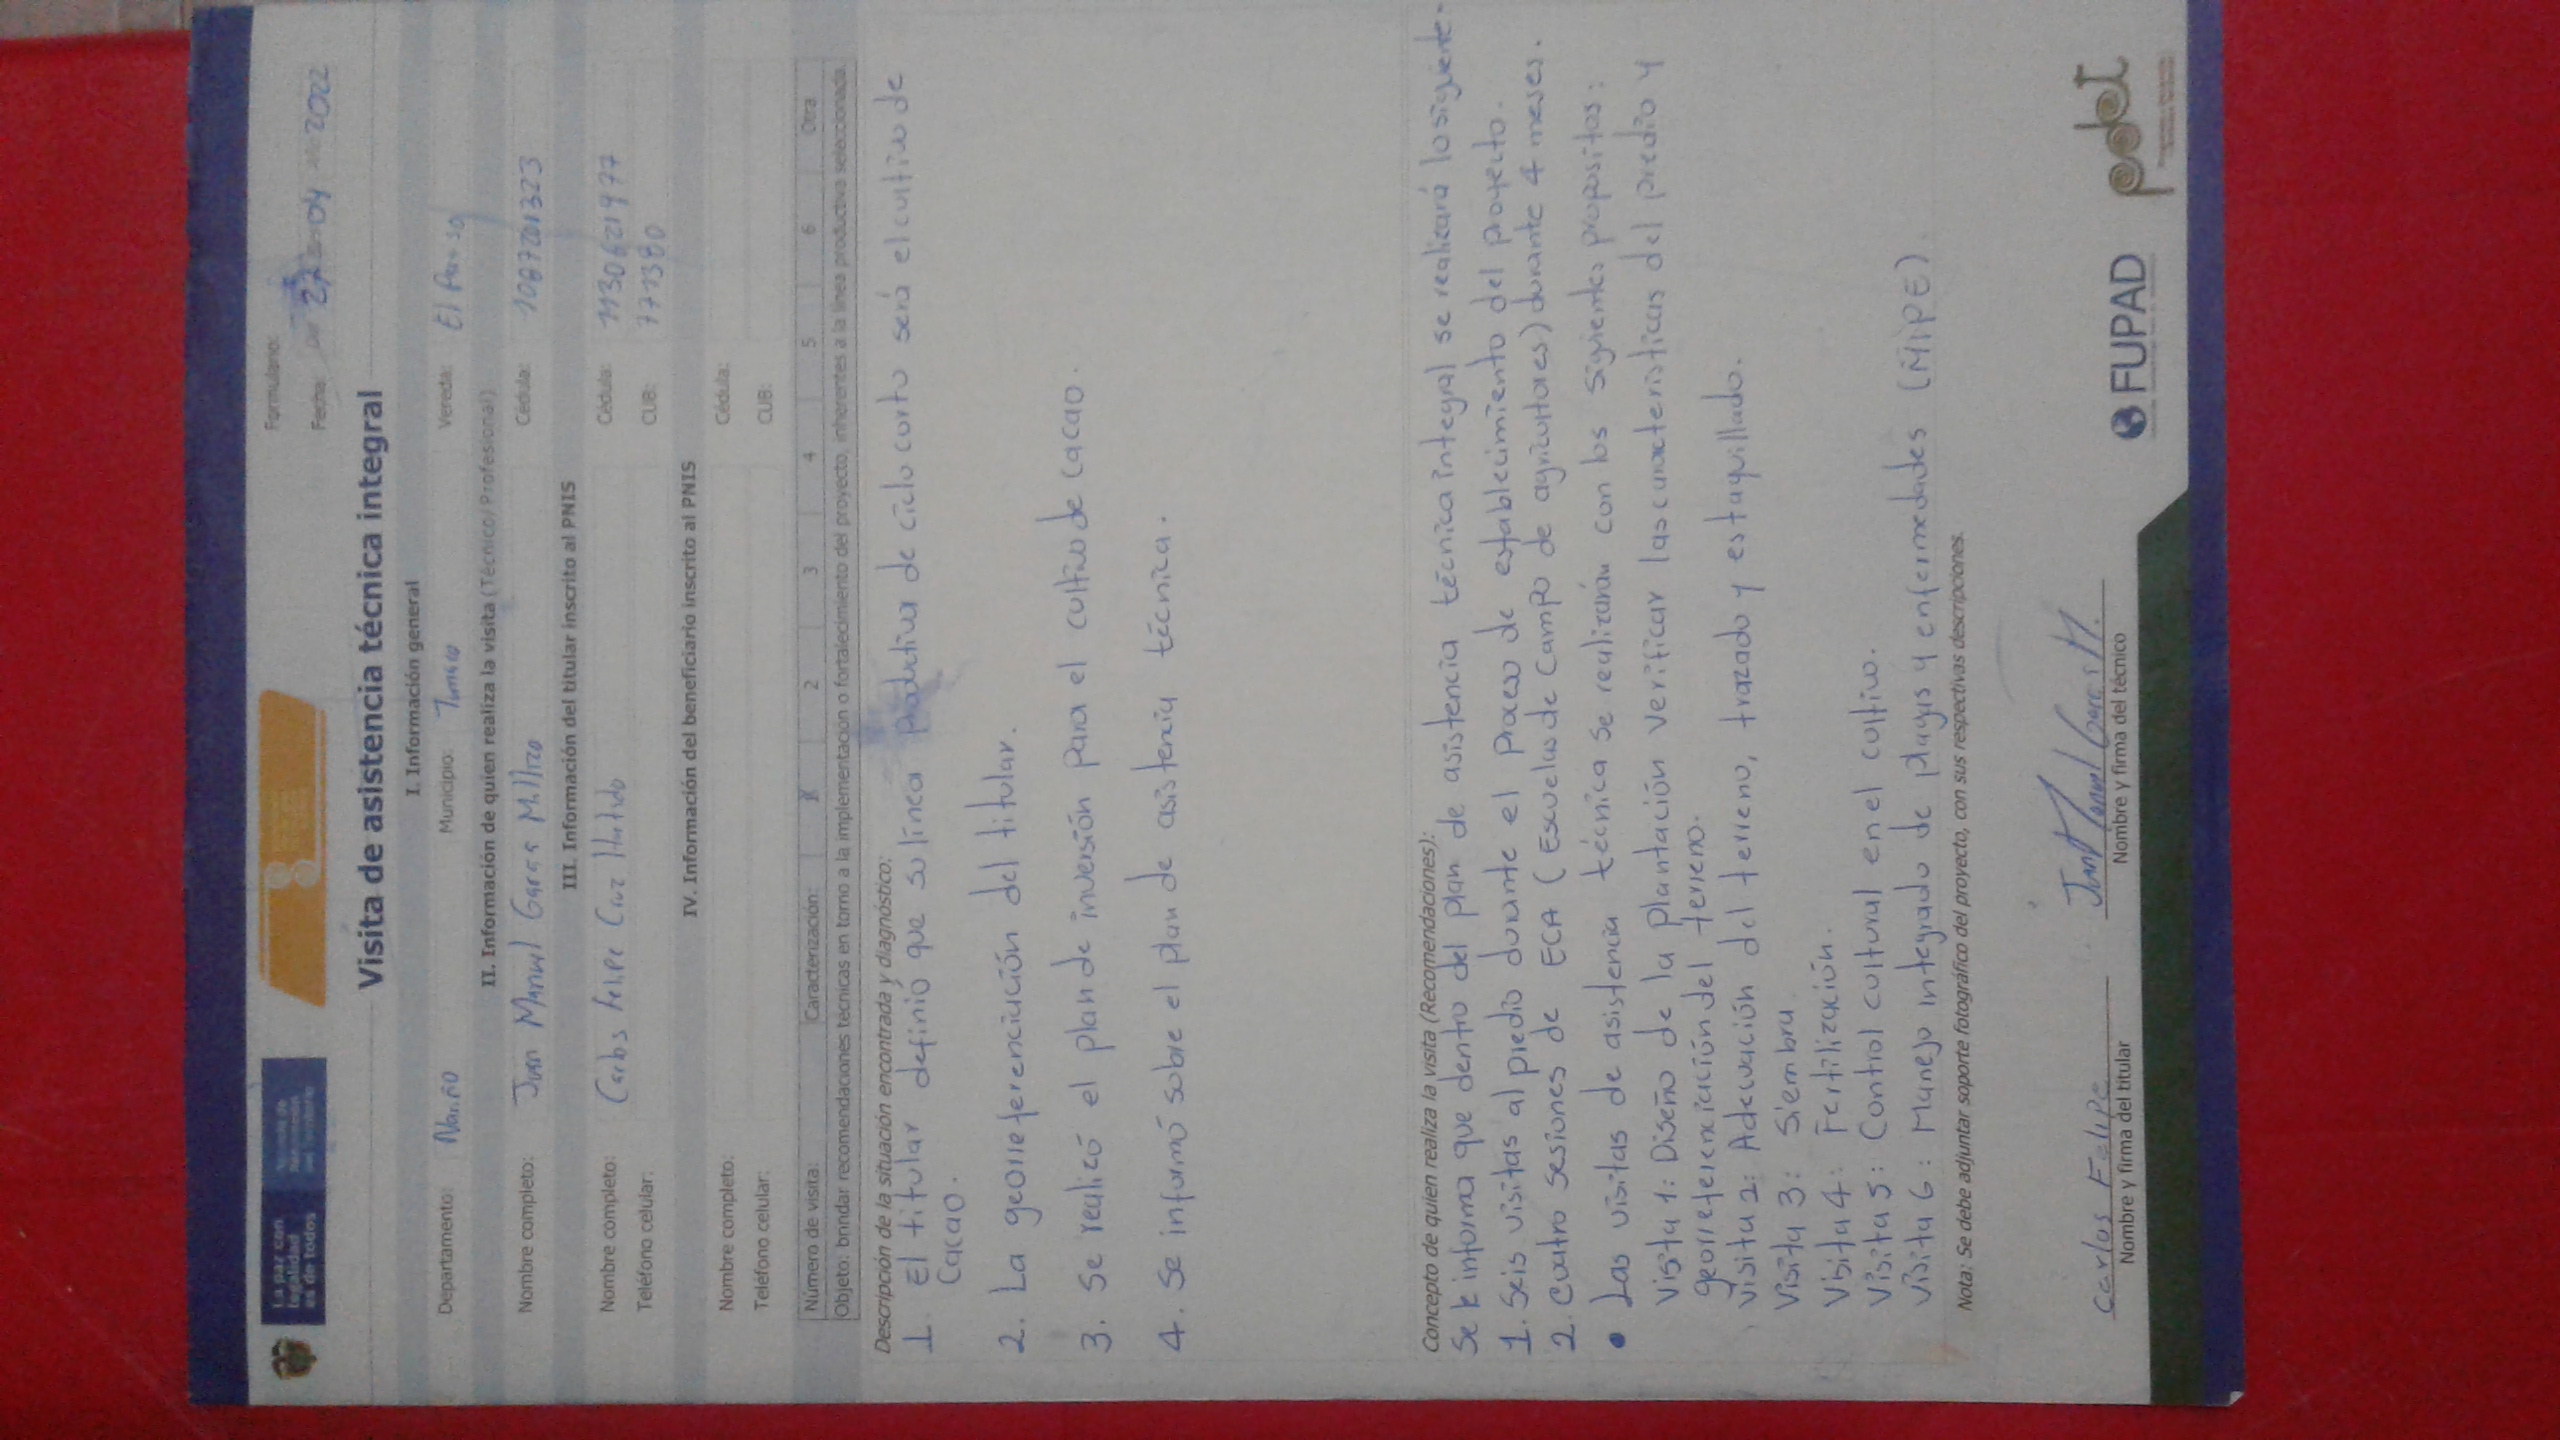 La paz con
legalidad
es de todos
Formulario:
Fecha: 22-04 2022
Visita de asistencia técnica integral
I. Información general
Departamento: Nariño Municipio: Tumaco Vereda: El
II. Información de quien realiza la visita (Técnico/Profesional)
Nombre completo: Juan Manuel Garces Cédula: 1087201323
III. Información del titular inscrito al PNIS
Nombre completo: Carlos Felipe Cruz Hurtado Cédula: 1130621977
Teléfono celular: CUB:
IV. Información del beneficiario inscrito al PNIS
Nombre completo: Cédula:
Teléfono celular: CUB:
Número de visita: Caracterización: X 2 3 4 5 6 Otra
Objeto: brindar recomendaciones técnicas en torno a la implementación o fortalecimiento del proyecto, inherentes a la línea productiva seleccionada.
Descripción de la situación encontrada y diagnóstico:
1. El titular definió que su línea productiva de ciclo corto será el cultivo de
Cacao.
2. La georreferenciación del titular.
3. Se realizó el plan de inversión para el cultivo de cacao.
4. Se informó sobre el plan de asistencia técnica.
Concepto de quien realiza la visita (Recomendaciones):
Se le informa que dentro del plan de asistencia técnica integral se realizará lo siguiente-
1. Seis visitas al predio durante el proceso de establecimiento del proyecto.
2. Cuatro sesiones de ECA (Escuelas de Campo de agricultores) durante 4 meses.
• Las visitas de asistencia técnica se realizarán con los siguientes propositos:
Visita 1: Diseño de la plantación verificar las características del predio y
georreferenciación del terreno.
Visita 2: Adecuación del terreno, trazado y estaquillado.
Visita 3: Siembra.
Visita 4: Fertilización.
Visita 5: Control cultural en el cultivo.
Visita 6: Manejo integrado de plagas y enfermedades (MIPE).
Nota: Se debe adjuntar soporte fotográfico del proyecto, con sus respectivas descripciones.
Carlos Felipe Juan Manuel Garces M.
Nombre y firma del titular Nombre y firma del técnico
FUPAD
pdet